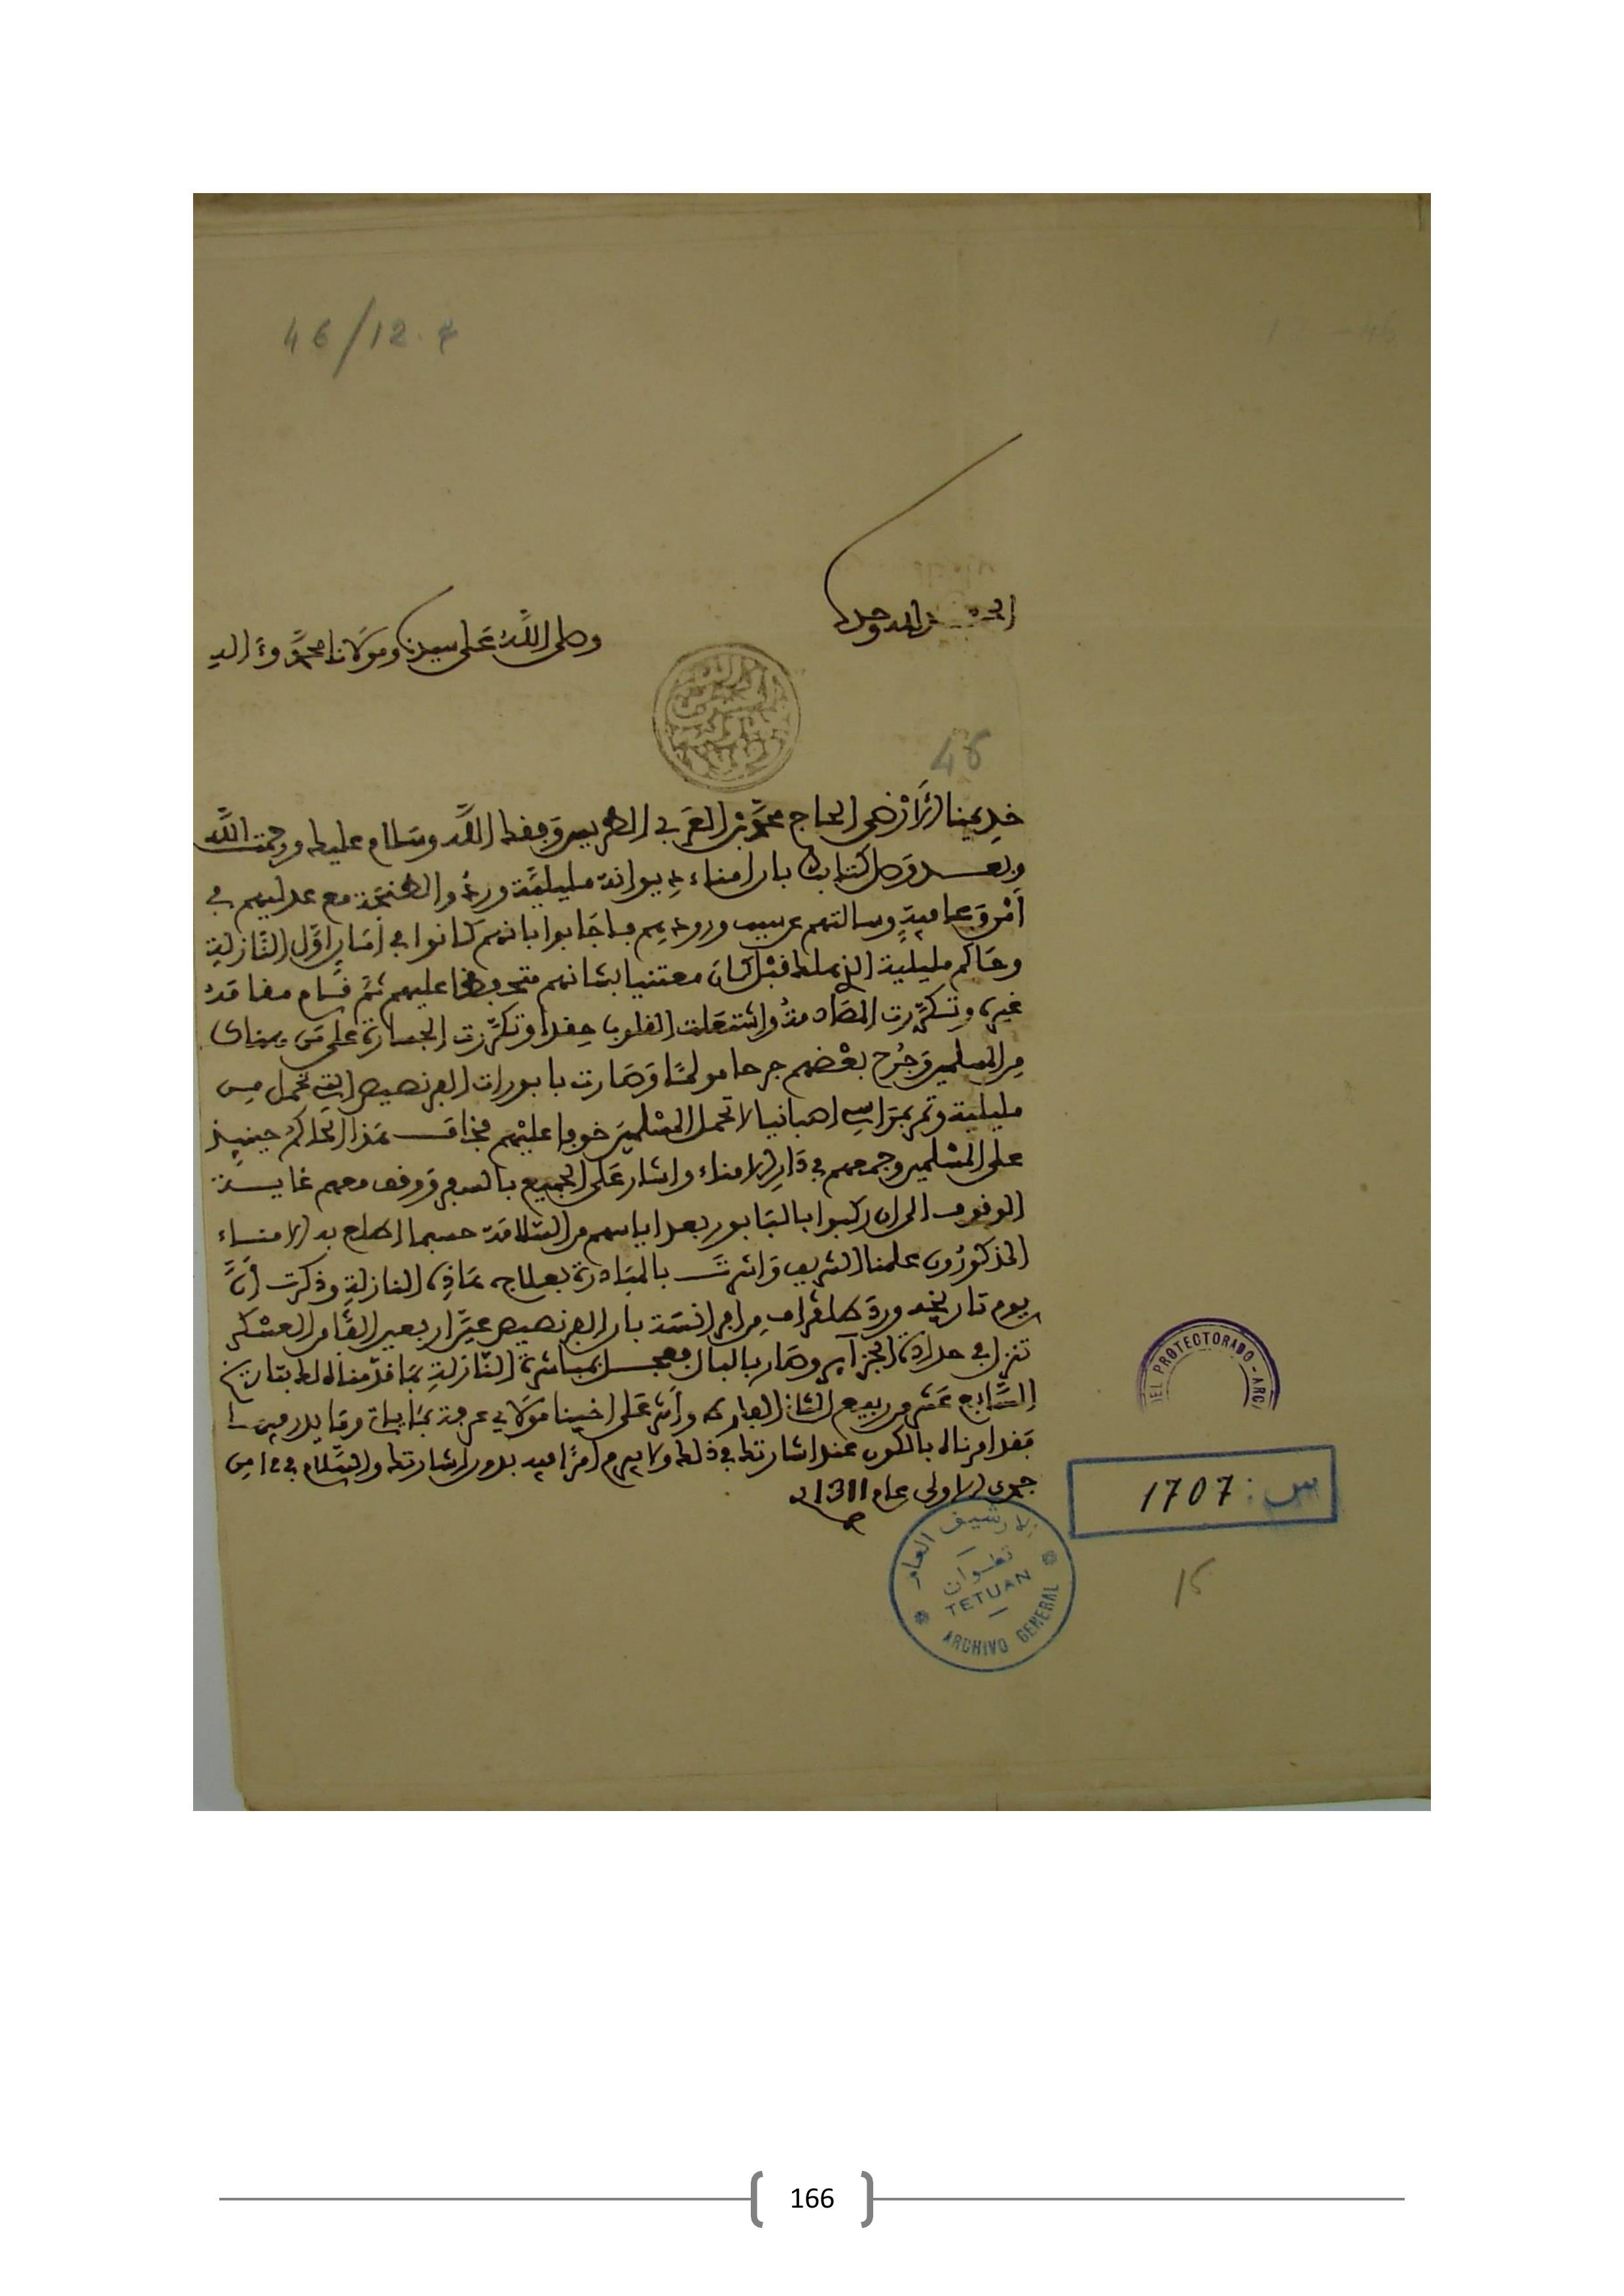 46/12.4
12-46
الحمد لله وحده
وصلى الله على سيدنا ومولانا محمد وءاله
46
خديمنا الأرضى الحاج محمد بن العربي الطريس وفقك الله وسلام عليك ورحمت الله
وبعد وصل كتابك بأن امناء ديوانة مليلية وردوا لطنجة مع عدليهم في
أمن وعافية وسالتهم عن سبب ورودهم فاجابوا بانهم كانوا في أمان اول النازلة
وحاكم مليلية الذي هلك قبل كان معتنيا بشانهم متحفظا عليهم ثم قام مقامه
غيره وتكررت المصادمة واشتعلت القلوب حقدا وتكررت الجسارة على من هناك
من المسلمين وجرح بعضهم جرحا مولما وصارت بابورات الفرنصيص التي تحمل من
مليلية وتمر بمراسي اصبانيا لا تحمل المسلمين خوفا عليهم فخاف هذا الحاكم حينئذ
على المسلمين وجمعهم في دار الامناء واشار على الجميع بالسفر ووقف معهم غاية
الوقوف الى ان ركبوا بالبابور بعد اياسهم من السلامة حسبما اطلع به الامناء
المذكورون علمنا الشريف واشرت بالمبادرة بعلاج هاذه النازلة وذكرت أن
يوم تاريخه ورد تلغراف من افرانسة بان الفرنصيص عين اربعين الفا من العسكر
تنزل في حدادة الجزاير وصار بالبال فعجل بمباشرة النازلة بما قدمناه لك بتاريخ
السابع عشر من ربيع الثاني الفارط وأشر على اخينا مولاي عرفة بما ياتي وما يذر فيها
فقد امرناه بالكون عند اشارتك في ذلك ولا يبرم أمرا فيه بدون اشارتك والسلام في 3 من
جمدى الاولى عام 1311
DEL PROTECTORADO - ARC
س: 1707
الارشيف العام
تطوان
TETUAN
ARCHIVO GENERAL
15
166